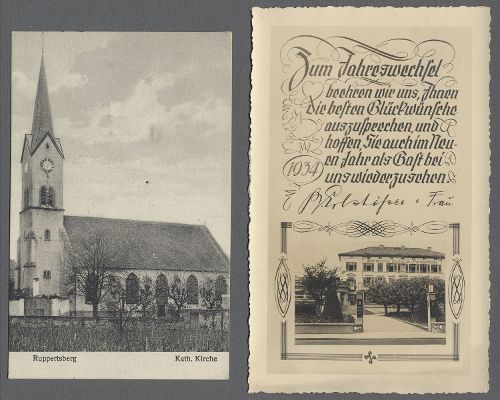 Ruppertsberg Kath. Kirche
Zum Jahreswechsel
beehren wir uns, Ihnen
die besten Glückwünsche
auszusprechen, und
hoffen, Sie auch im Neu-
en Jahr als Gast bei
uns wiederzusehen.
1934
Frau